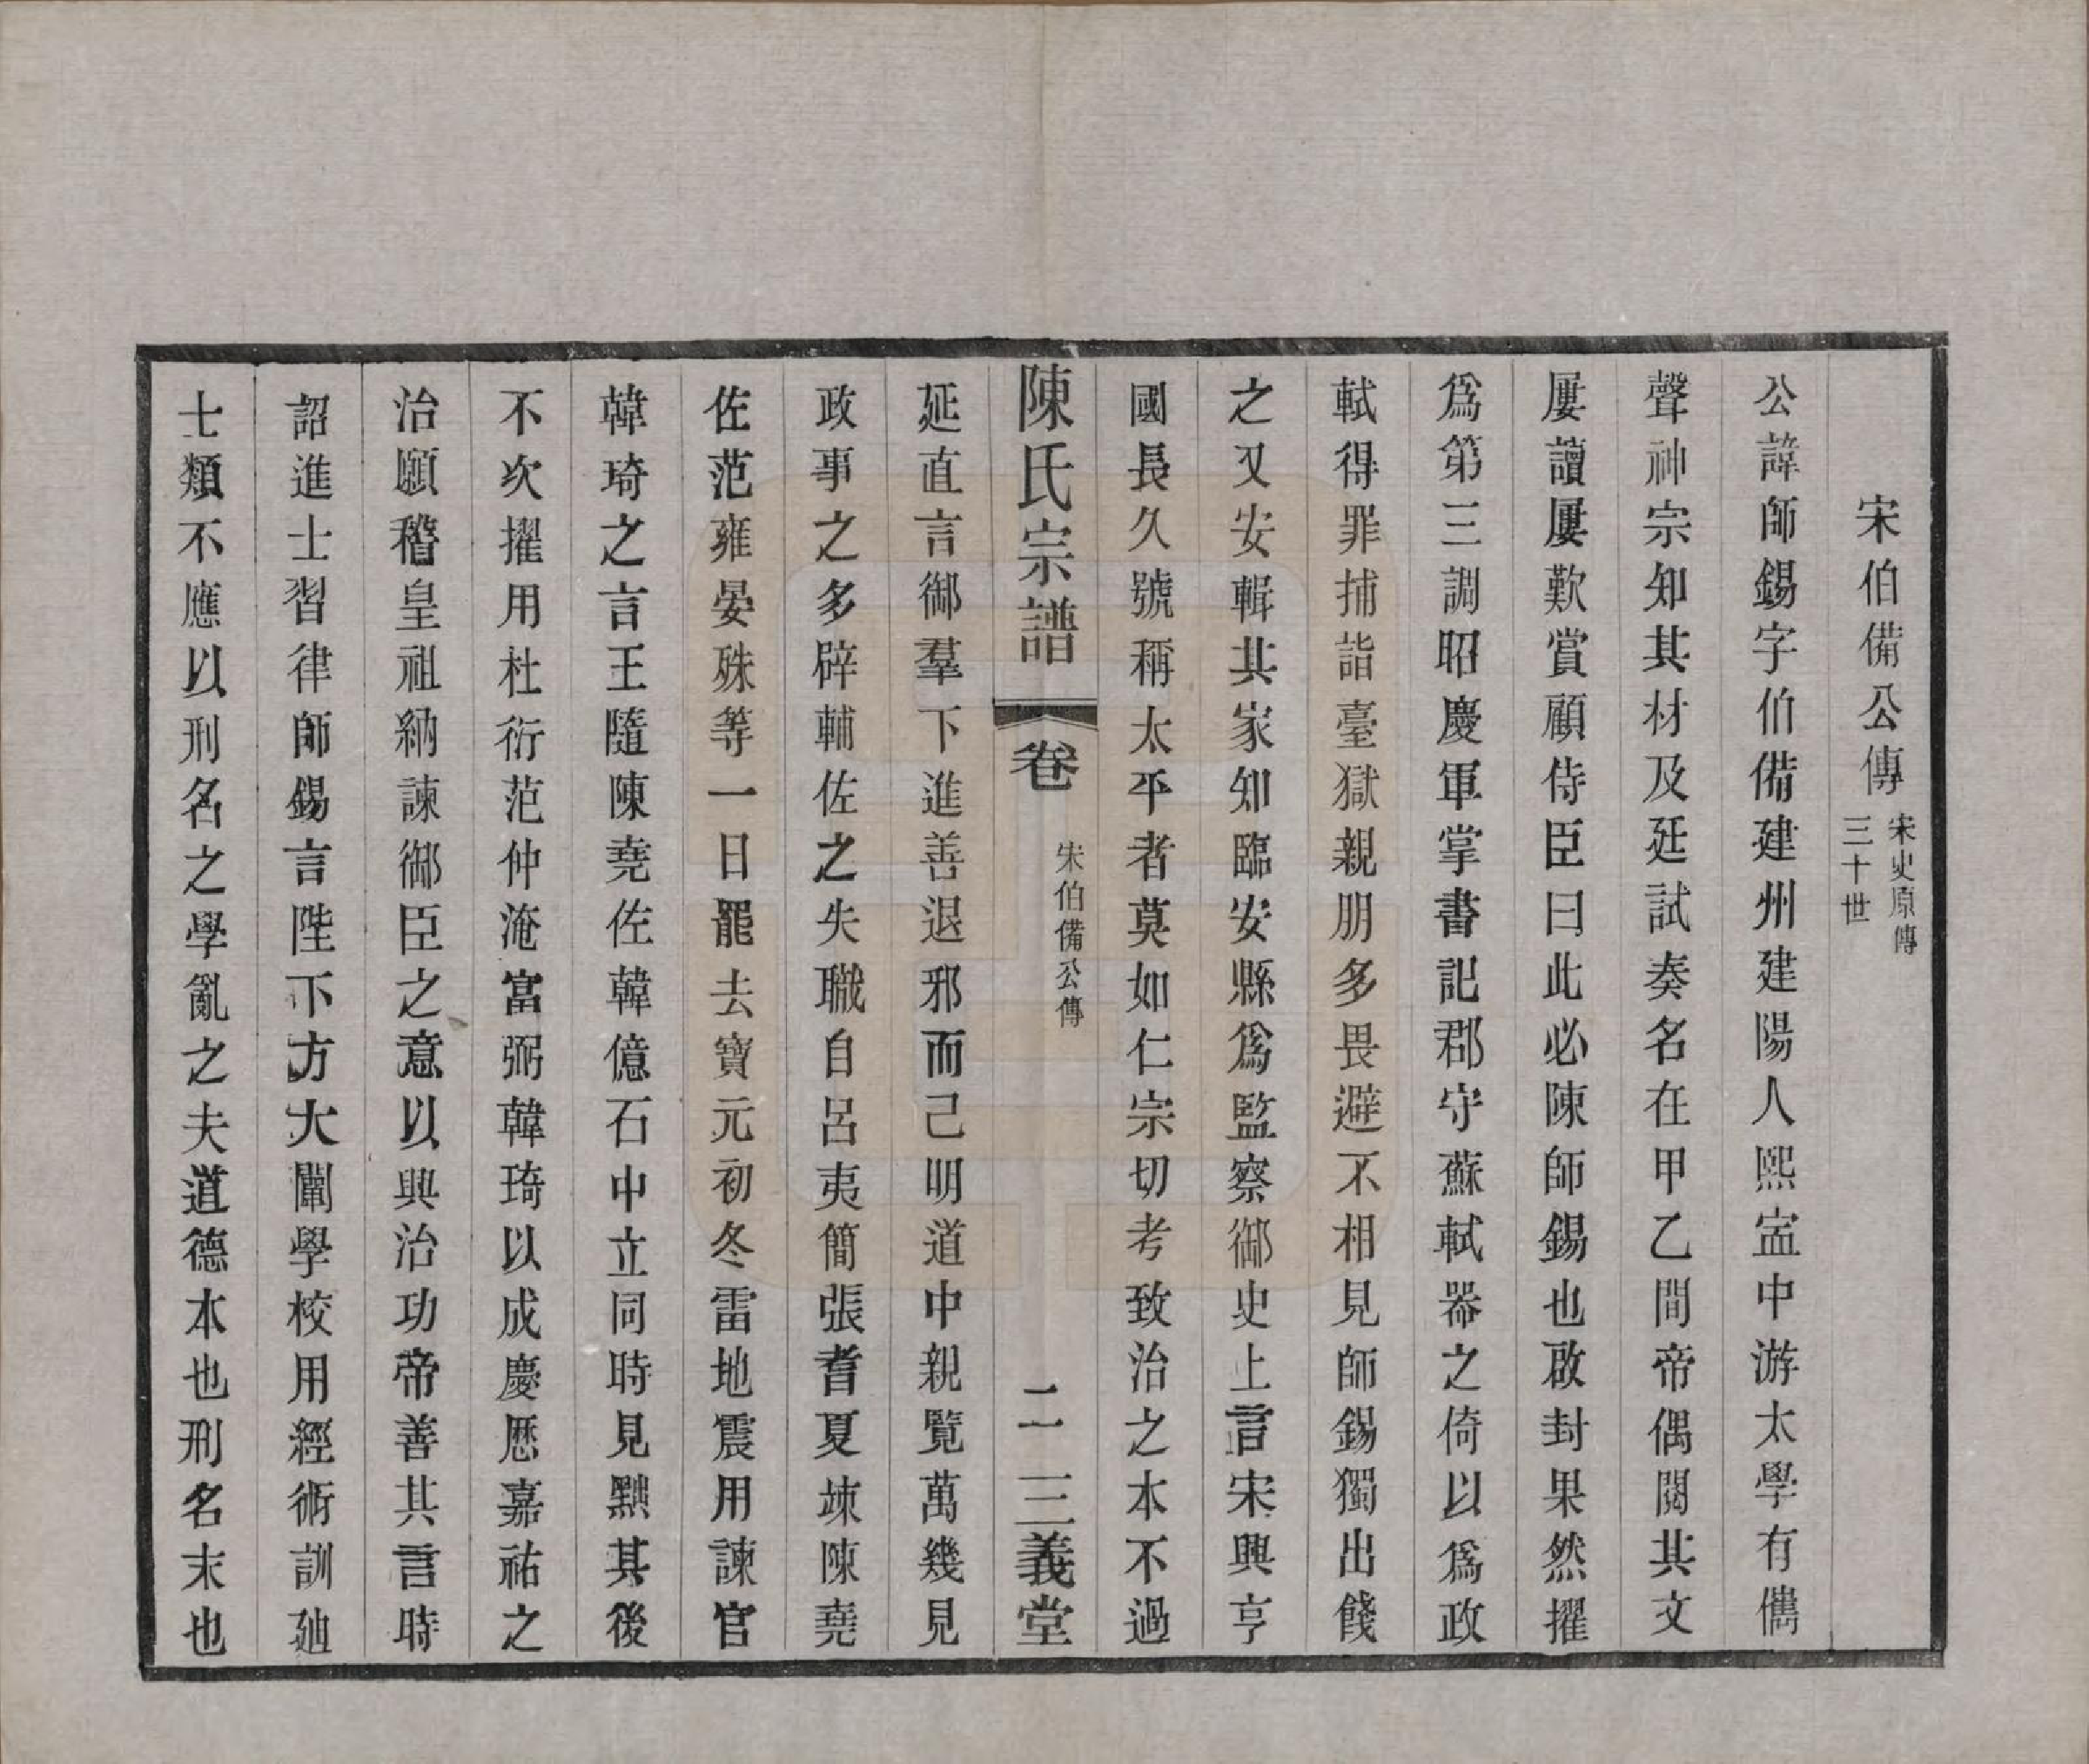 宋伯備公傳 宋史原傳 三十世
公諱師錫字伯備建州建陽人熙寍中游太學有儁
聲神宗知其材及廷試奏名在甲乙間帝偶閱其文
屢讀屢歎賞顧侍臣曰此必陳師錫也啟封果然擢
爲第三調昭慶軍掌書記郡守蘇軾器之倚以爲政
軾得罪捕詣臺獄親朋多畏避不相見師錫獨出餞
之又安輯其家知臨安縣爲監察御史上言宋興亨
國長久號稱太平者莫如仁宗切考致治之本不過
陳氏宗譜 卷 宋伯備公傳 二 三義堂
延直言御羣下進善退邪而己明道中親覽萬幾見
政事之多辟輔佐之失職自呂夷簡張耆夏竦陳堯
佐范雍晏殊等一日罷去寶元初冬雷地震用諫官
韓琦之言王隨陳堯佐韓億石中立同時見黜其後
不次擢用杜衍范仲淹富弼韓琦以成慶厯嘉祐之
治願稽皇祖納諫御臣之意以興治功帝善其言時
詔進士習律師錫言陛下方大闡學校用經術訓廸
士類不應以刑名之學亂之夫道德本也刑名末也